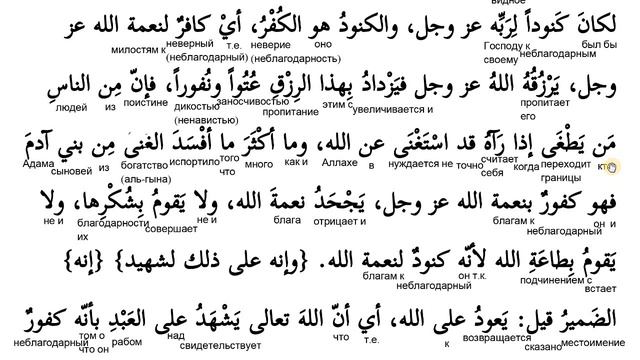 видное
لكانَ كَنوداً لِرَبِّه عز وجل، والكنودُ هو الكُفْرُ، أيْ كافرٌ لنعمة الله عز
был бы неблагодарным Господу к своему оно неверие (неблагодарность) т.е. неверный (неблагодарный) милостям к
وجل، يَرْزُقُهُ اللهُ عز وجل فيَزْدادُ بِهذا الرِزْقِ عُتُواً ونُفوراً، فإنّ مِن الناسِ
пропитает его увеличивается и этим с пропитание заносчивостью дикостью (ненавистью) поистине из людей
مَن يَطْغَى إذا رَآهُ قد اسْتَغْنَى عن الله، وما أكْثَرَ ما أفْسَدَ الغنىَ مِن بني آدمَ
кто переходит границы когда считает себя точно нуждается не в Аллахе как и много того что испортило богатство (аль-гына) из сыновей Адама
فهو كفورٌ بنعمة الله عز وجل، يَجْحَدُ نعمةَ الله، ولا يَقومُ بِشُكْرِها، ولا
он и неблагодарный благам к отрицает и блага не и совершает благодарности их не и
يَقومُ بِطاعَةِ الله لأنّه كنودٌ لنعمة الله. {وإنه على ذلك لشهيد} {إنه}
встает подчинением с он т.к. неблагодарный благам к
الضميرُ قيل: يَعودُ على الله، أي أنّ اللهَ تعالى يَشْهَدُ على العَبْدِ بأنّه كفورٌ
местоимение сказано возвращается к т.е. что свидетельствует над рабом том о что он неблагодарный